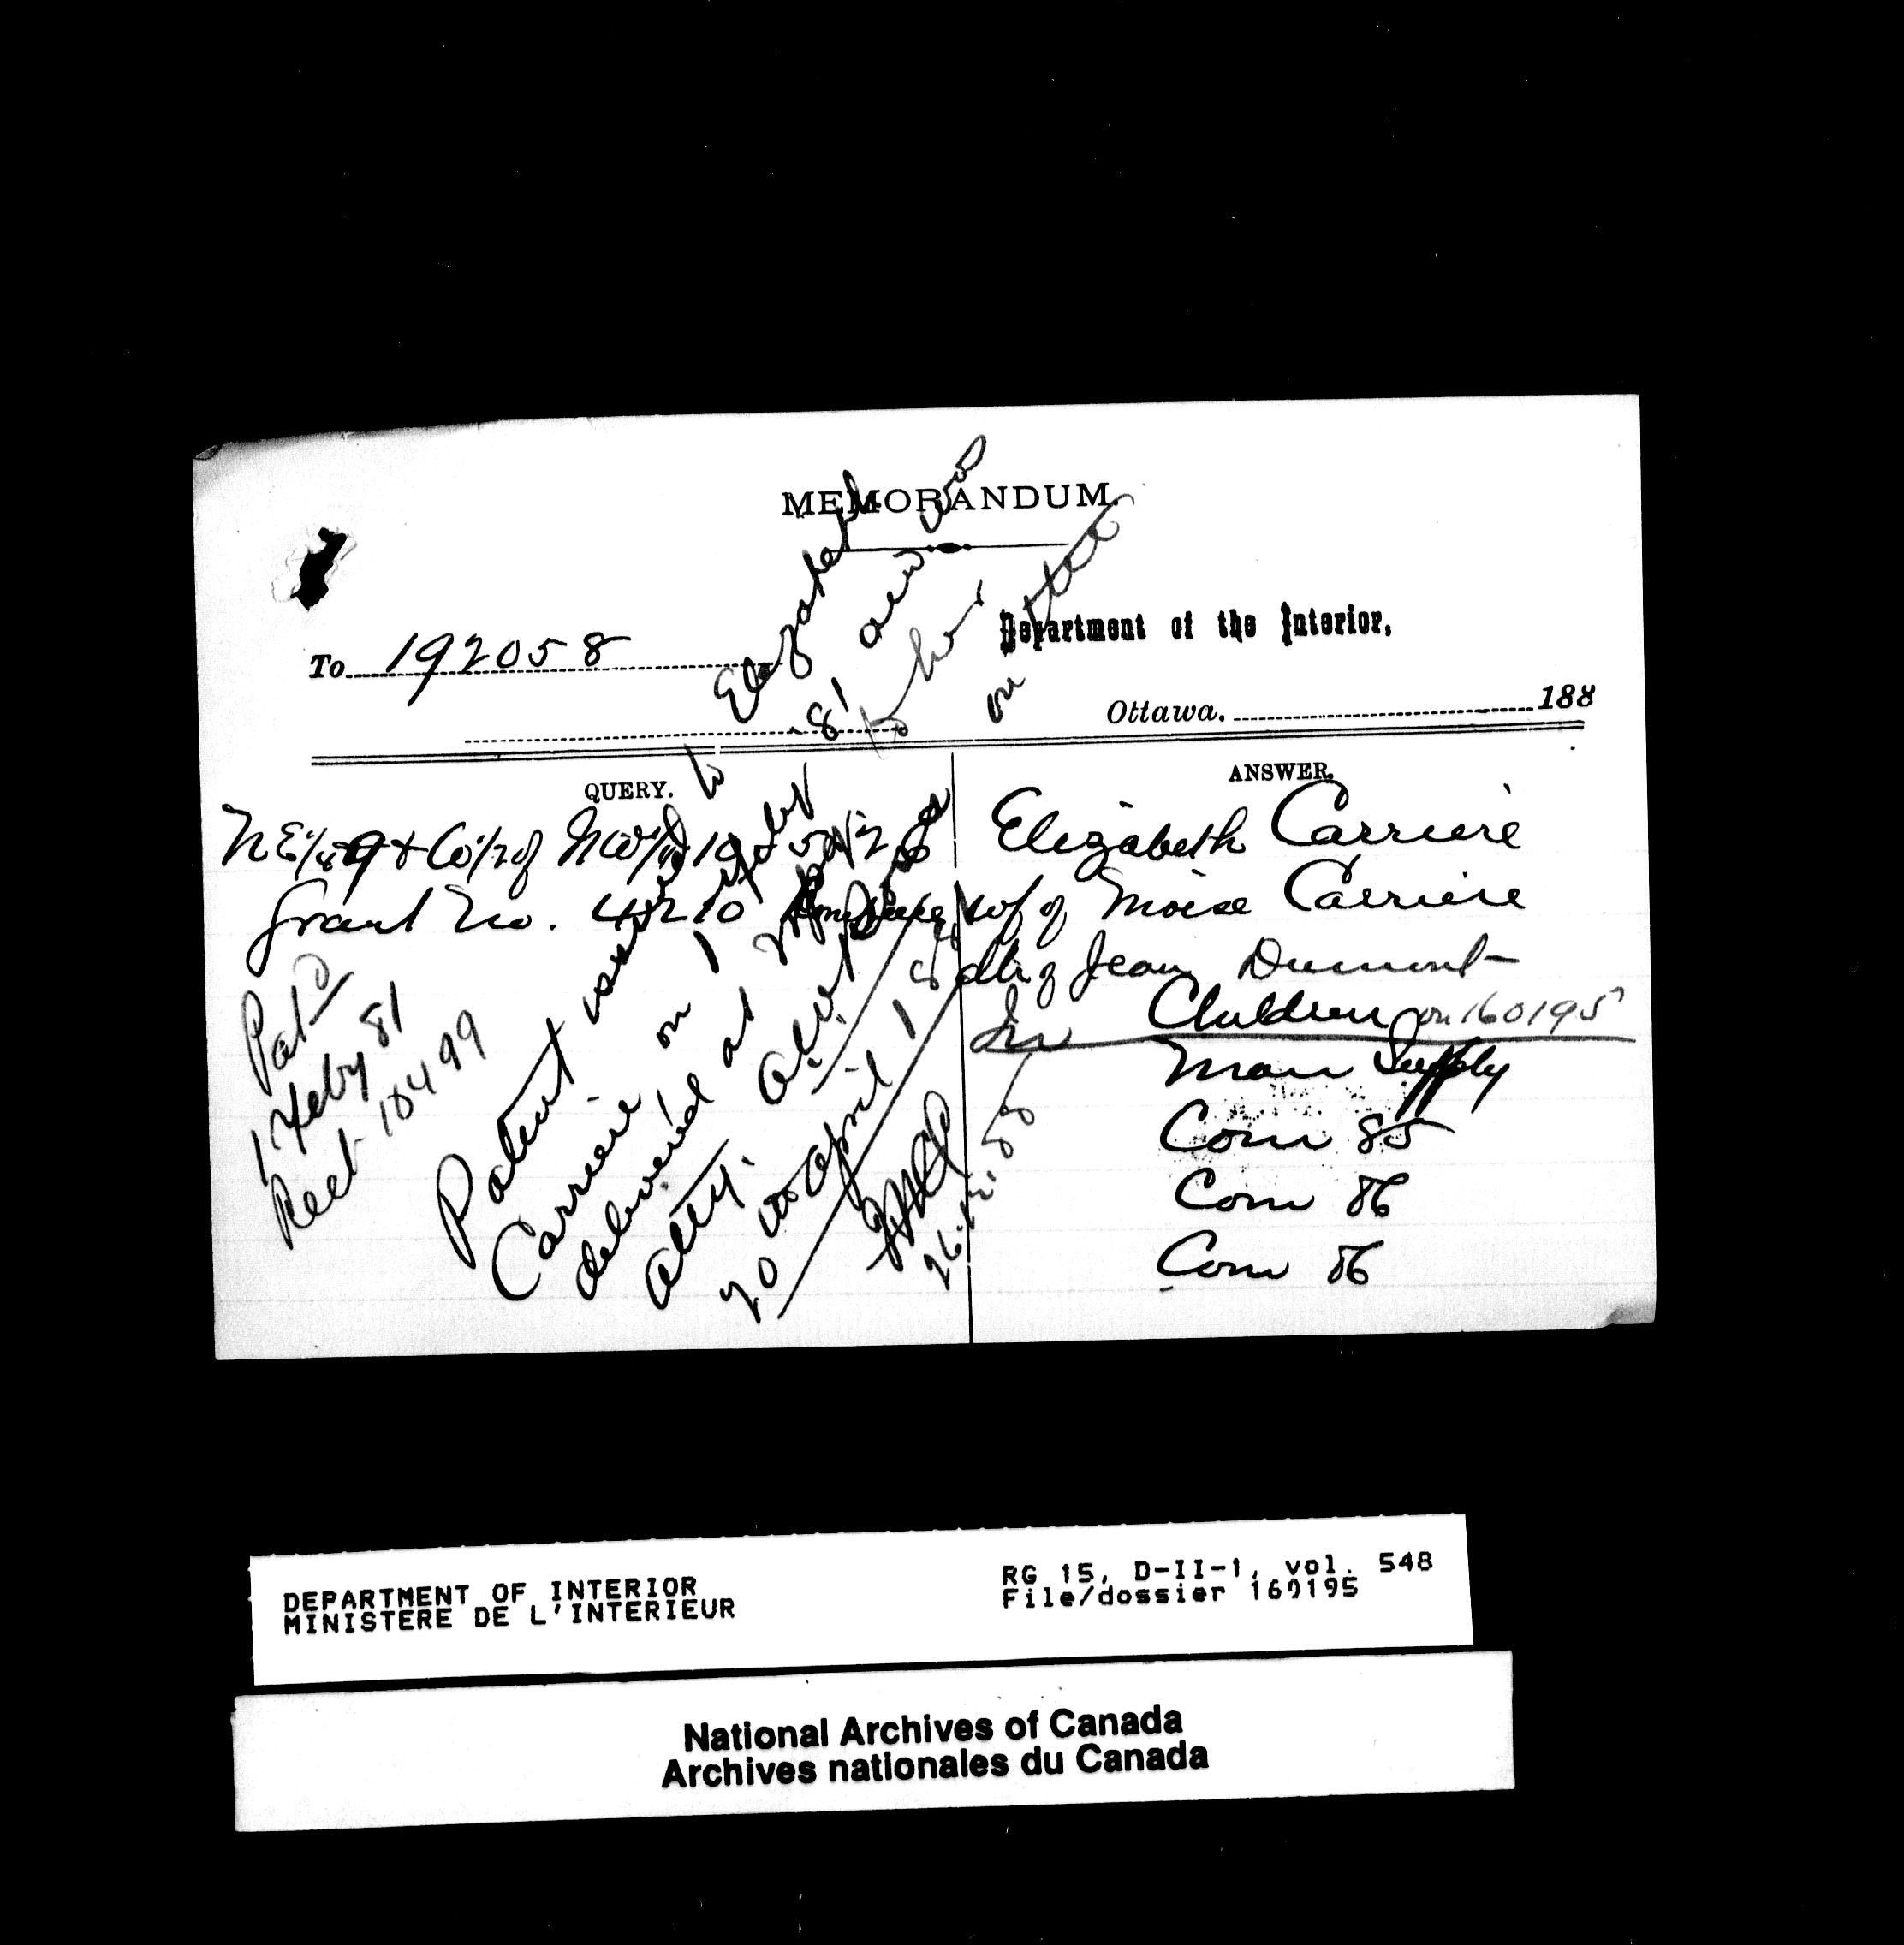 MEMORANDUM.
Department of the Interior,
To 192058
Ottawa, 188
QUERY.
NE 1/4 9 & W 1/2 of NW 1/4 10
Grant No. 4210
Patd
1 Feby 81
Rect 18499
Patent issued to Elizabeth
Carriere on 1 Feby 81 and
delivered at to her
atty.
20 April 18
26.12.88
ANSWER.
Elizabeth Carriere
wf of Moise Carriere
dtr of Jean Dumont
Children on 160195
Man Supply
Com 85
Com 86
Com 86
DEPARTMENT OF INTERIOR
MINISTERE DE L'INTERIEUR
RG 15, D-II-1, vol. 548
File/dossier 160195
National Archives of Canada
Archives nationales du Canada